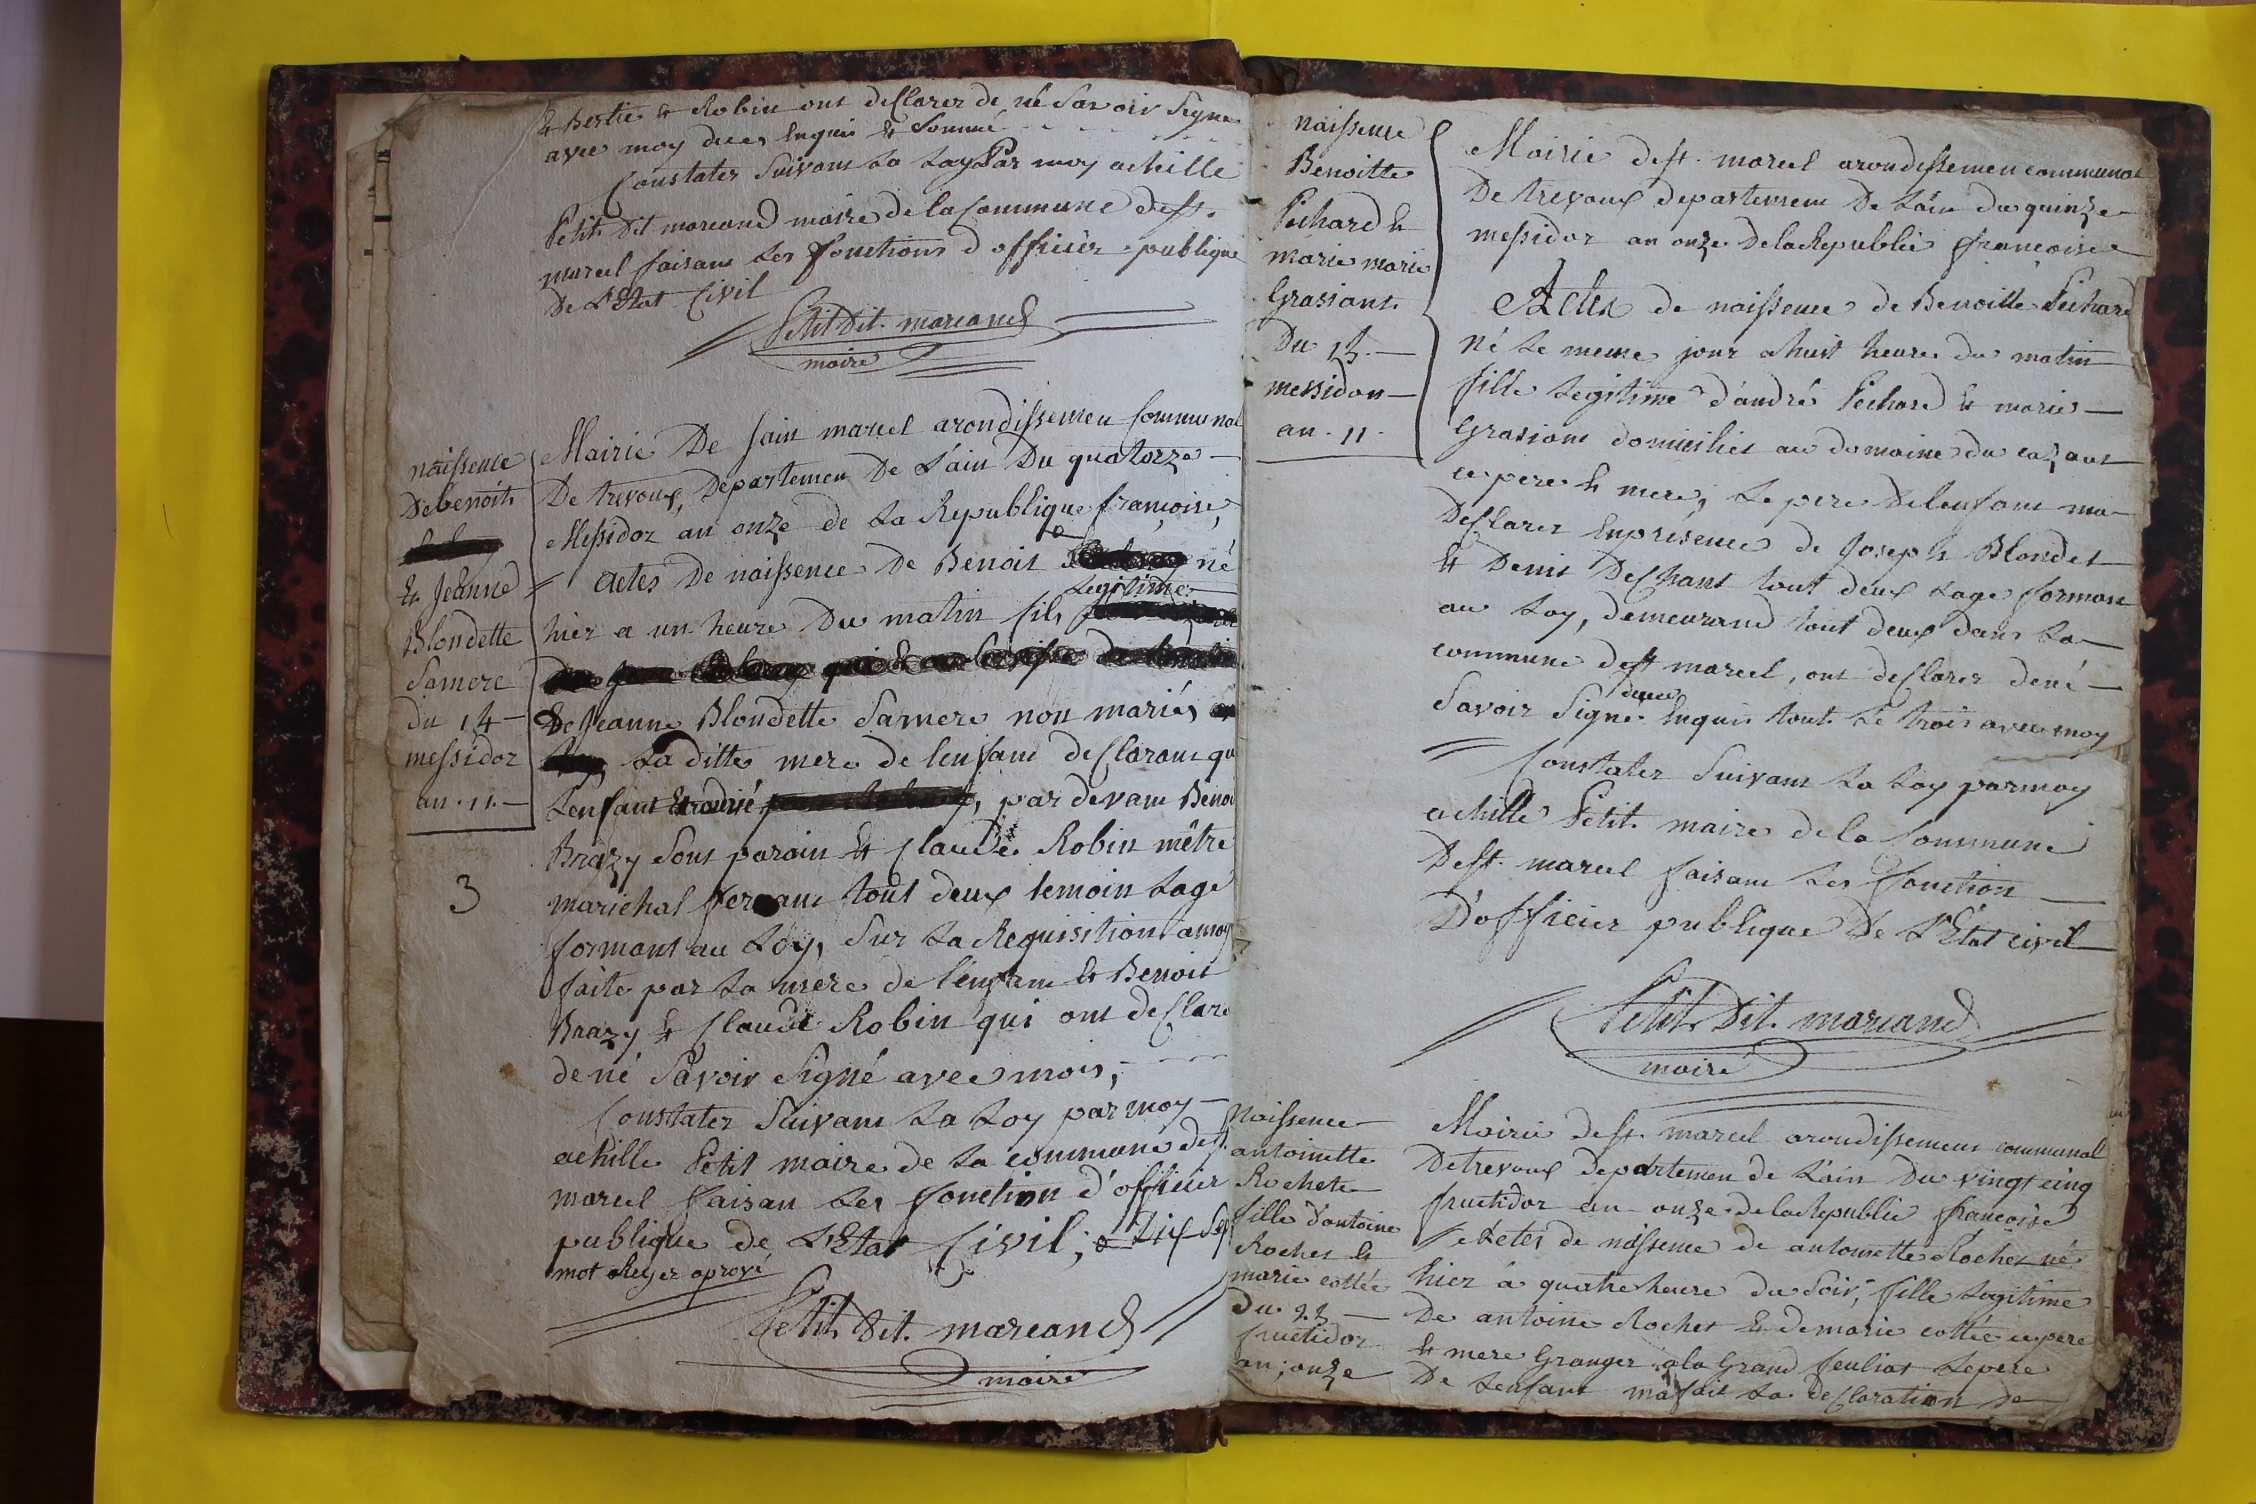 & Bertie & Robin ont desClarer de né Savoir Signe
avec moy dices Enquis & Sommé
Constater Suivans La Loy Par moy achille
Petit Dit marcand maire de la Commune de st.
marcel faisans Les fonctions d'officièr publique
De L'Etat Civil
Petit Dit. marcand
maire
naissence
De benoit
& Jeanne
Blondette
Samere
du 14
messidor
an . 11.
3
Mairie De sain marcel arondissemen Communal
De trevoux, Departemen De L'ain Du quatorze
Messidor an onze de La Republique françoise,
Actes De naissence De Benoit né
Legitime
hier a un heure Du matin fils
De Jeanne Blondette Samere non mariés
La ditte mere de lenfant desClarant qu
Lenfant par devant Benoi
Brazy Sont parain & Claude Robin mêtre
marichal ferant tout deux temoin Lage
formant au Loy, Sur La Requisition a moy
faite par La mere de l'enfant & Benoit
Brazy & Claude Robin qui ont desClare
de né Savoir Signé avec mois,
Constater Suivans La Loy par moy
achille Petit maire de La commune de st.
marcel faisan Les fonction d'officier
publique de L'Etat Civil; Dix Sep
mot Reyer aprové
Petit Dit. marcand
maire
naissence
Benoitte
Pichard &
marie marie
Grasiant
Du 15
messidor
an . 11 .
Mairie de st. marcel arondissemen communal
De trevoux departemen De Lain du quinze
messidor an onze De la Republie françoise
Actes de naissence de Benoitte Pichard
Né Le meme jour a huit heure du matin
fille Legitime d'andré Pichard & marie
Grasiant domicilies au domaine du
ce pere & mere; Le pere De lenfant ma
DesClarer En présence de Joseph Blondet
& Denis Deschant tout deux Lage formant
au Loy, demeurand tout deux dans La
commune de st marcel, ont desClarer de né
dices
Savoir Signe Enquis tout Lé trois avec moy
Constater Suivans La Loy par moy
achille Petit maire de la Commune
De st. marcel faisans Les fonction
D'officier publique De L'Etat civil
Petit Dit. marcand
mairé
Naissence
antoinette
Rochet
fille d'antoine
Rochet &
marie cottée
Du 25
fructidor
an; onze
Mairie de st. marcel arondissement communal
De trevoux departemen de Lain Du vingt cinq
fructidor an onze de la Republie françoise
Actes de naissence de antoinette Rochet né
hier á quatre heure du Soir, fille Legitime
De antoine Rochet & de marie cottée ce pere
& mere Granger a la Grand feuliat Le pere
De Lenfant ma fait La desClaration de